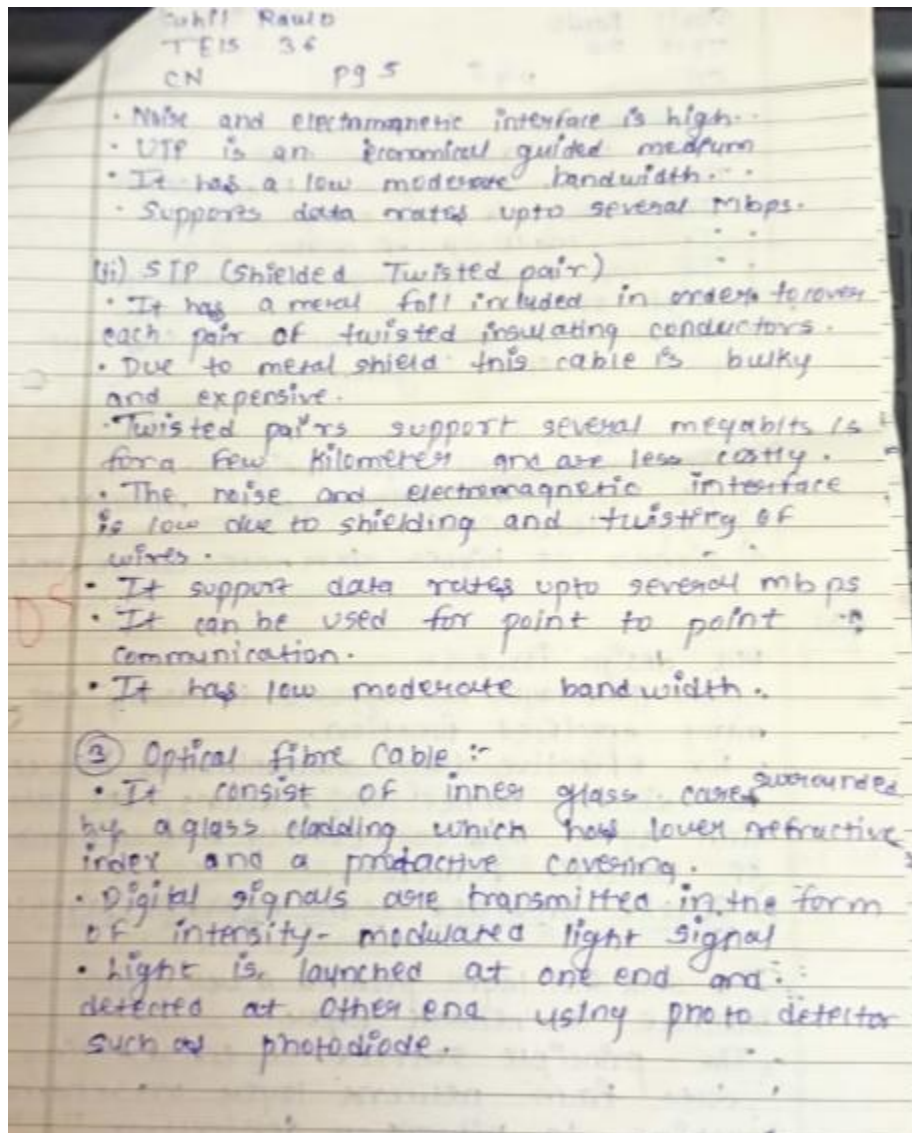 Raulo
TEIS 36
CN pg 5
• Noise and electromagnetic interface is high.
• UTP is an economical guided medium
• It has a low moderate bandwidth.
• Supports data rates upto several Mbps.
(ii) STP (Shielded Twisted pair)
• It has a metal foil included in order to cover
each pair of twisted insulating conductors.
• Due to metal shield this cable is bulky
and expensive.
• Twisted pairs support several megabits is
for a few kilometer and are less costly.
• The noise and electromagnetic interface
is low due to shielding and twisting of
wires.
• It support data rates upto several mbps
• It can be used for point to point
communication.
• It has low moderate bandwidth.
③ Optical fibre Cable :-
• It consist of inner glass cores surrounded
by a glass cladding which has lower refractive
index and a protactive covering.
• Digital signals are transmitted in the form
of intensity- modulated light signal
• Light is launched at one end and
detected at other end using photo detector
such as photodiode.